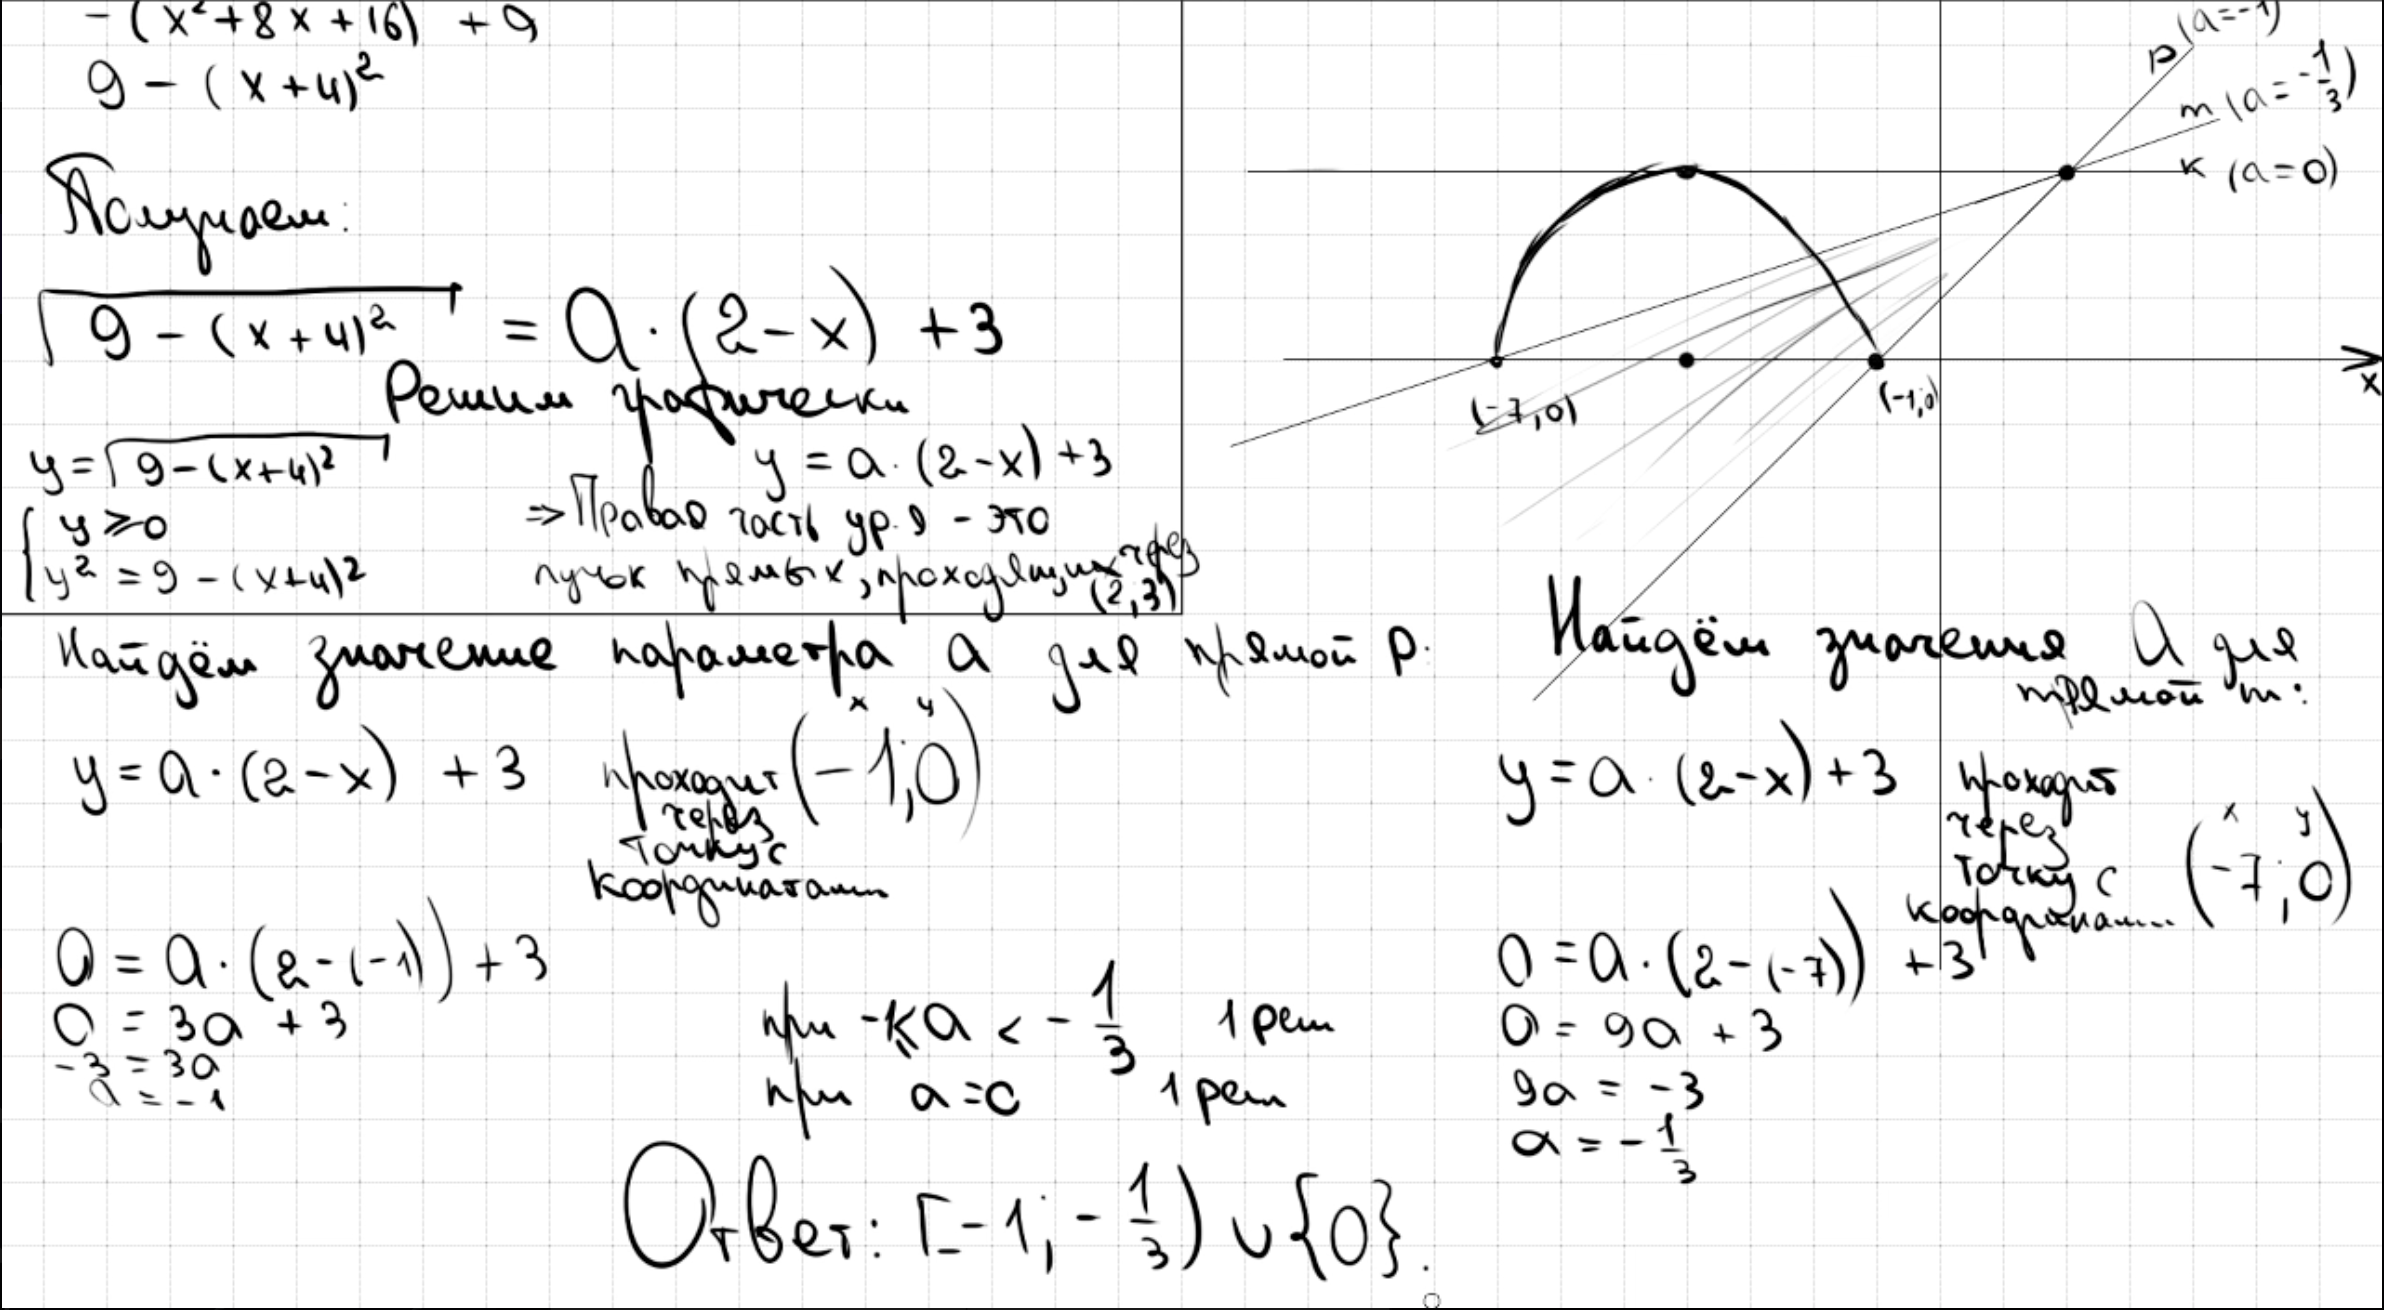 - (x²+8x+16) + 9
9 - (x+4)²
Получаем:
√(9 - (x+4)²) = a·(2-x) + 3
Решим графически
y = √(9-(x+4)²)
{ y ⩾ 0
y² = 9 - (x+4)²
y = a·(2-x) + 3
⇒ Правая часть ур.я - это
пучок прямых, проходящих через
(2,3)
p (a=-1)
m (a=-1/3)
k (a=0)
(-7,0)
(-1,0)
x
Найдём значение параметра a для прямой p.
y = a·(2-x) + 3
проходит
через
точку с
координатами
x y
(-1;0)
0 = a·(2-(-1)) + 3
0 = 3a + 3
-3 = 3a
a = -1
Найдём значения a для
прямой m:
y = a·(2-x) + 3
проходит
через
точку с
координатам...
x y
(-7;0)
0 = a·(2-(-7)) + 3
0 = 9a + 3
9a = -3
a = -1/3
при -1⩽a < -1/3 1 реш
при a=0 1 реш
Ответ: [-1; -1/3) ∪ {0}.